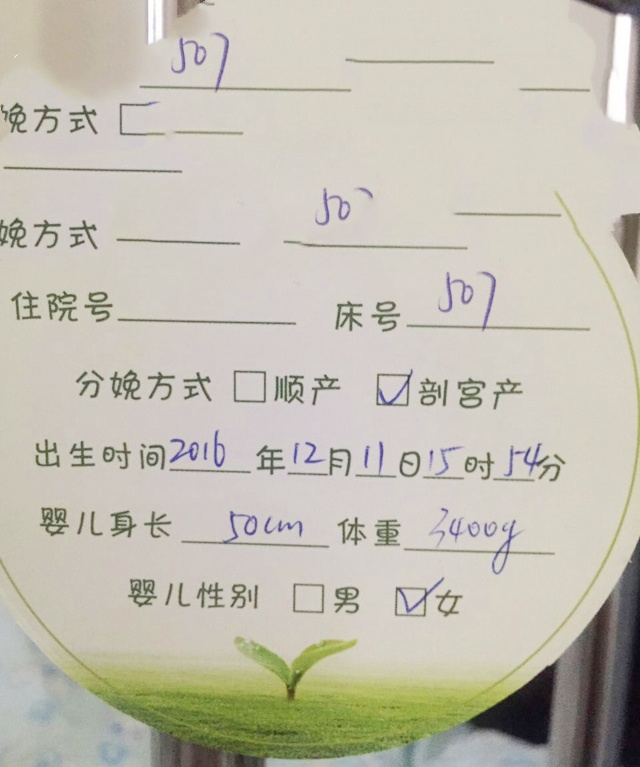 507
娩方式 □
娩方式 50
住院号 床号 507
分娩方式 □顺产 ☑剖宫产
出生时间2016年12月11日15时54分
婴儿身长 50cm 体重 3400g
婴儿性别 □男 ☑女